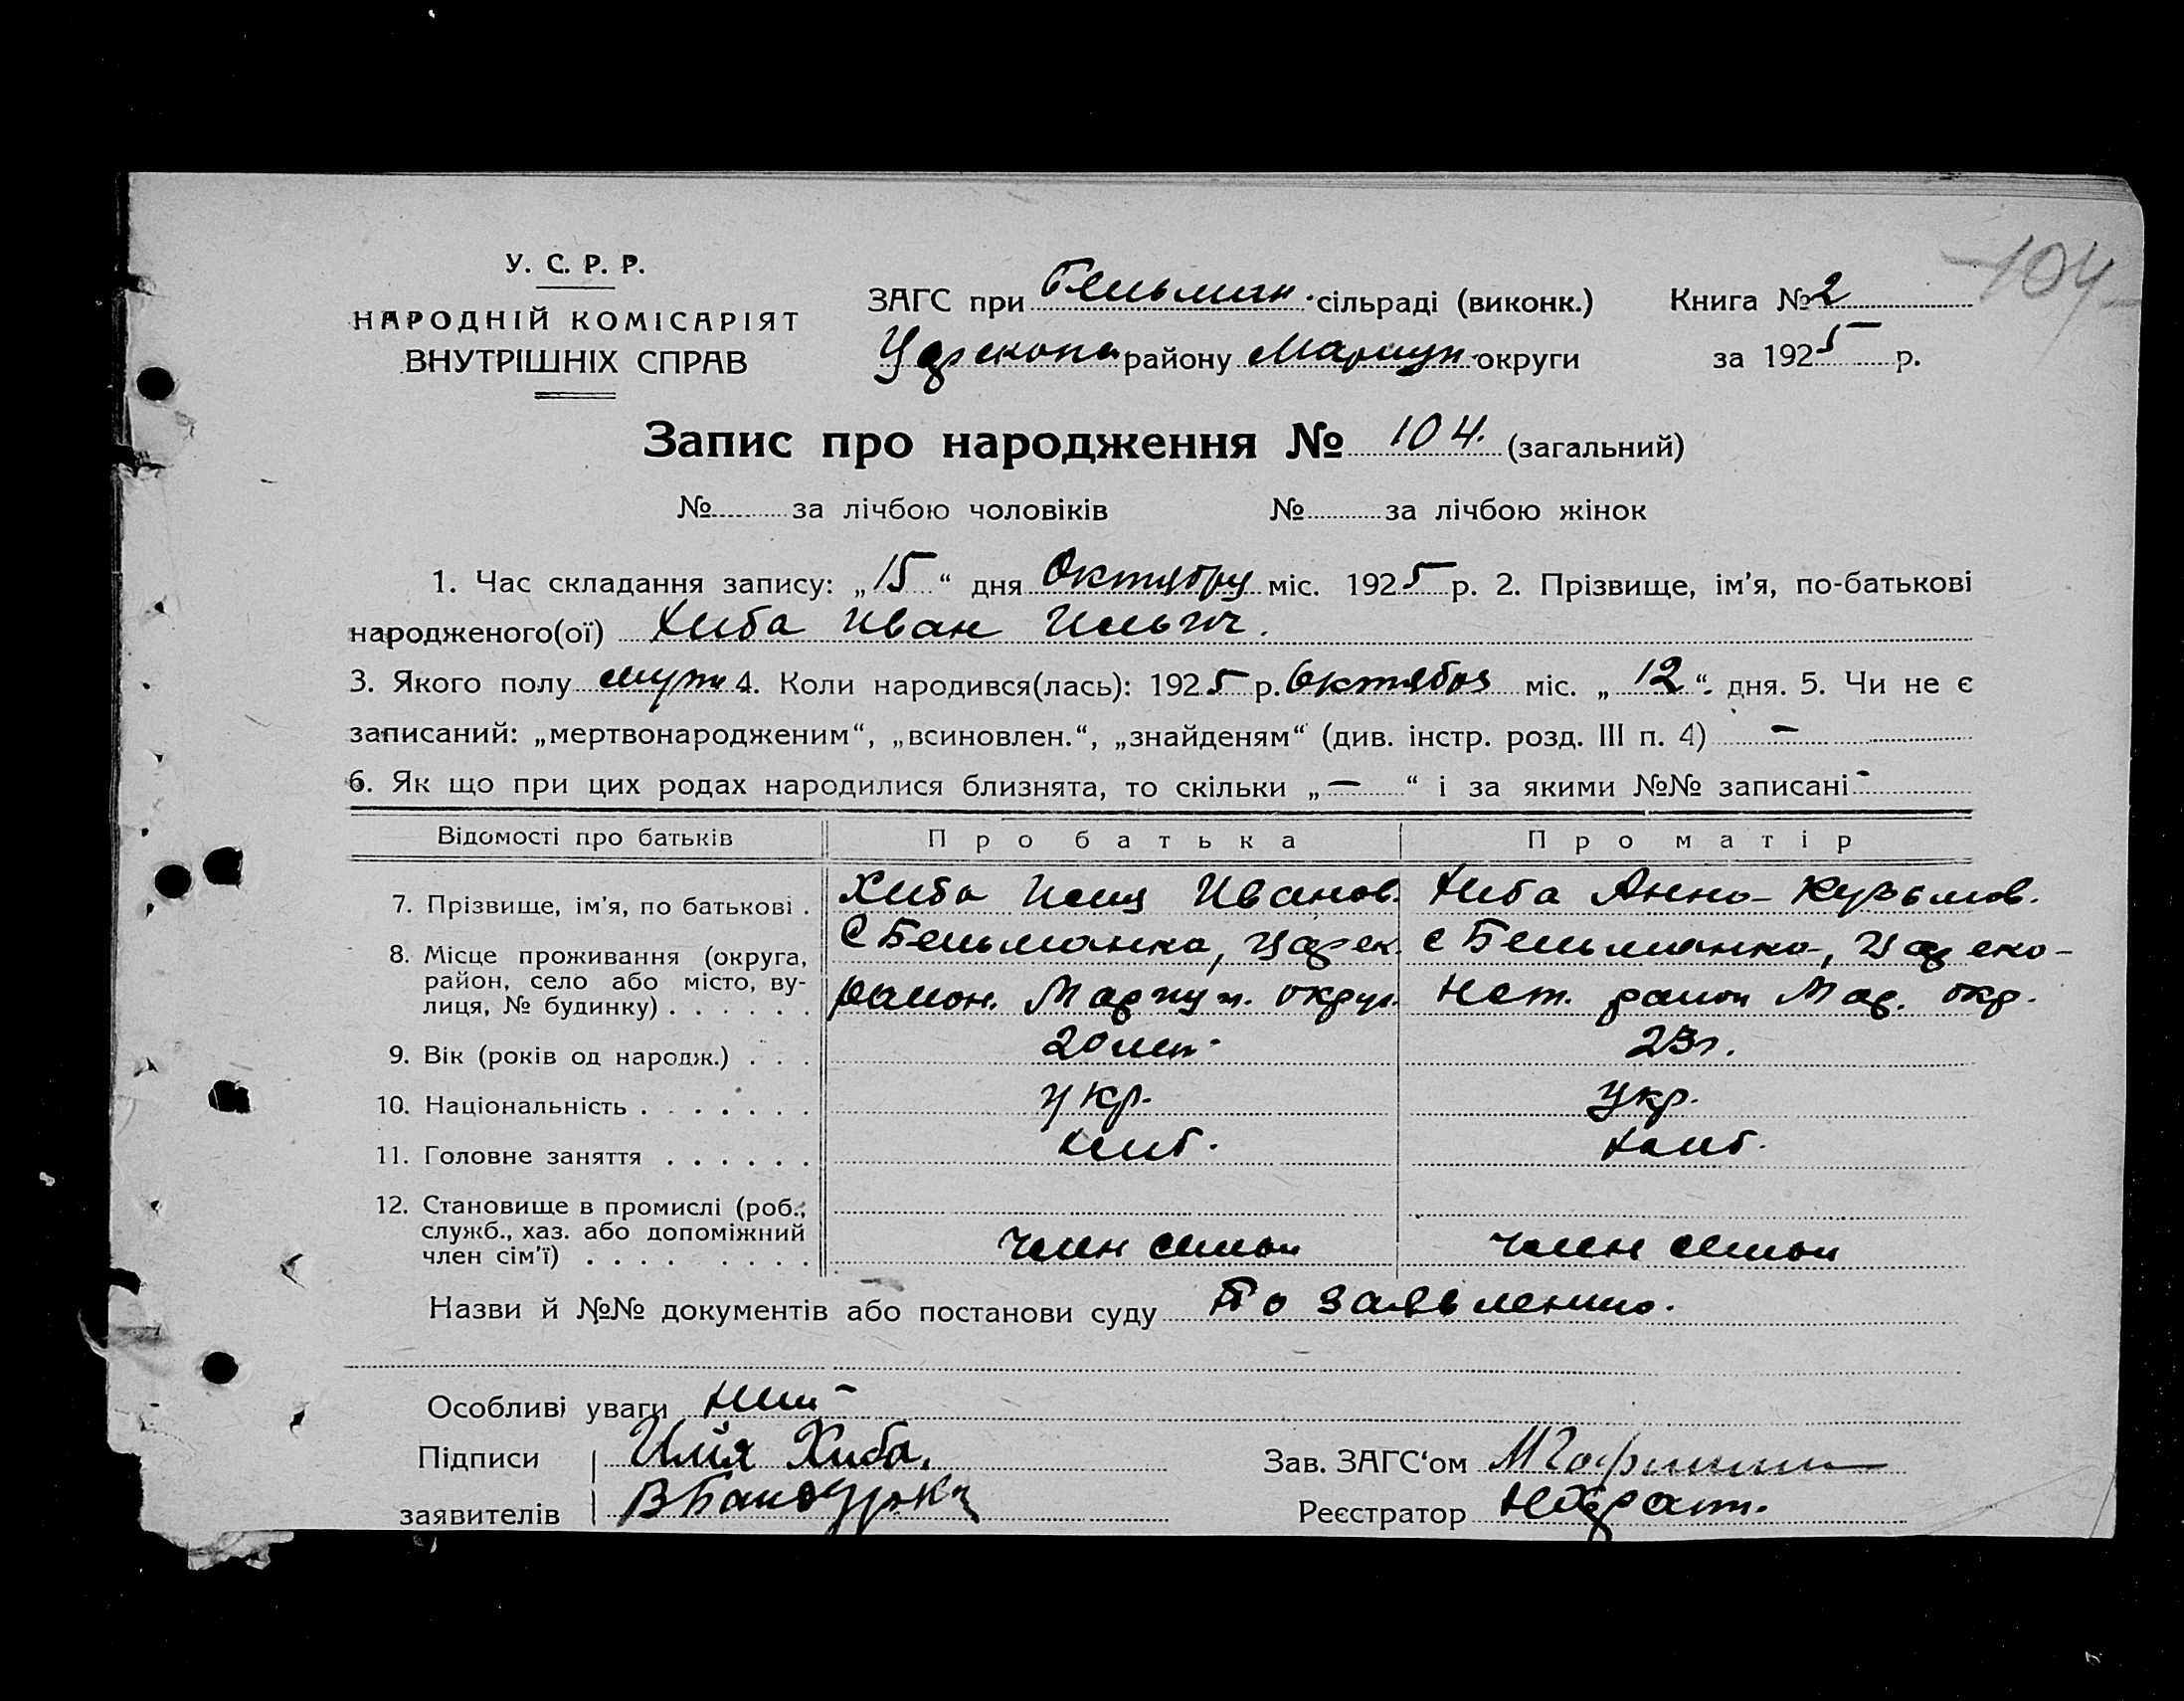 104
У. С. Р. Р.
НАРОДНІЙ КОМІСАРІЯТ
ВНУТРІШНІХ СПРАВ
ЗАГС при Бельман. сільраді (виконк.) Книга № 2
Царекона району Мариуп. округи за 1925 р.
Запис про народження № 104. (загальний)
№ за лічбою чоловіків № за лічбою жінок
1. Час складання запису: „15“ дня Октября міс. 1925 р. 2. Прізвище, ім’я, по-батькові
народженого(ої) Хиба Иван Ильич.
3. Якого полу муж 4. Коли народився(лась): 1925 р. Октября міс. „12“ дня. 5. Чи не є
записаний: „мертвонародженим“, „всиновлен.“, „знайденям“ (див. інстр. розд. III п. 4) —
6. Як що при цих родах народилися близнята, то скільки „—“ і за якими №№ записані -
Відомості про батьків Про батька Про матір
7. Прізвище, ім’я, по батькові . Хиба Илия Иванов. Хиба Анна
8. Місце проживання (округа, район, село або місто, вулиця, № будинку) . . . . . .
С Бельманка, Царек. с Бельманка, Царекo-
район. Мариуп. округ. Конст. район Мар. окр.
9. Вік (років од народж.) . . . 20 лет. 23 г.
10. Національність . . . . . . . укр. Укр.
11. Головне заняття . . . . . . хлиб. хлиб.
12. Становище в промислі (роб., служб., хаз. або допоміжний член сім’ї) . . . . . . . .
член семьи член семьи
Назви й №№ документів або постанови суду По заявлению.
Особливі уваги
Підписи Илія Хиба. Зав. ЗАГС‘ом
заявителів В Бандурка Реєстратор